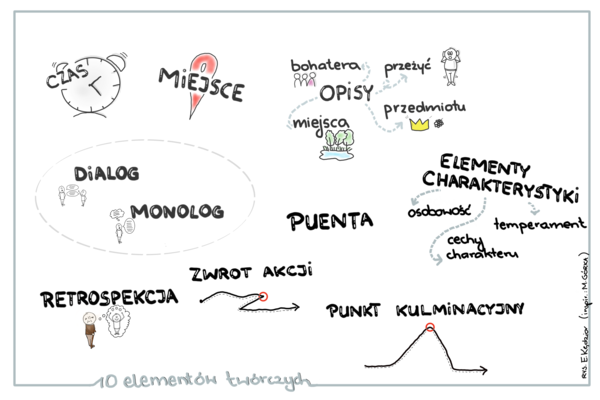 CZAS
MIEJSCE
bohatera
przeżyć
OPISY
przedmiotu
miejsca
DIALOG
MONOLOG
PUENTA
ELEMENTY
CHARAKTERYSTYKI
osobowość
temperament
cechy
charakteru
RETROSPEKCJA
ZWROT AKCJI
PUNKT KULMINACYJNY
10 elementów twórczych
RYS. E. Kędzior (inspir. M. Górecka)